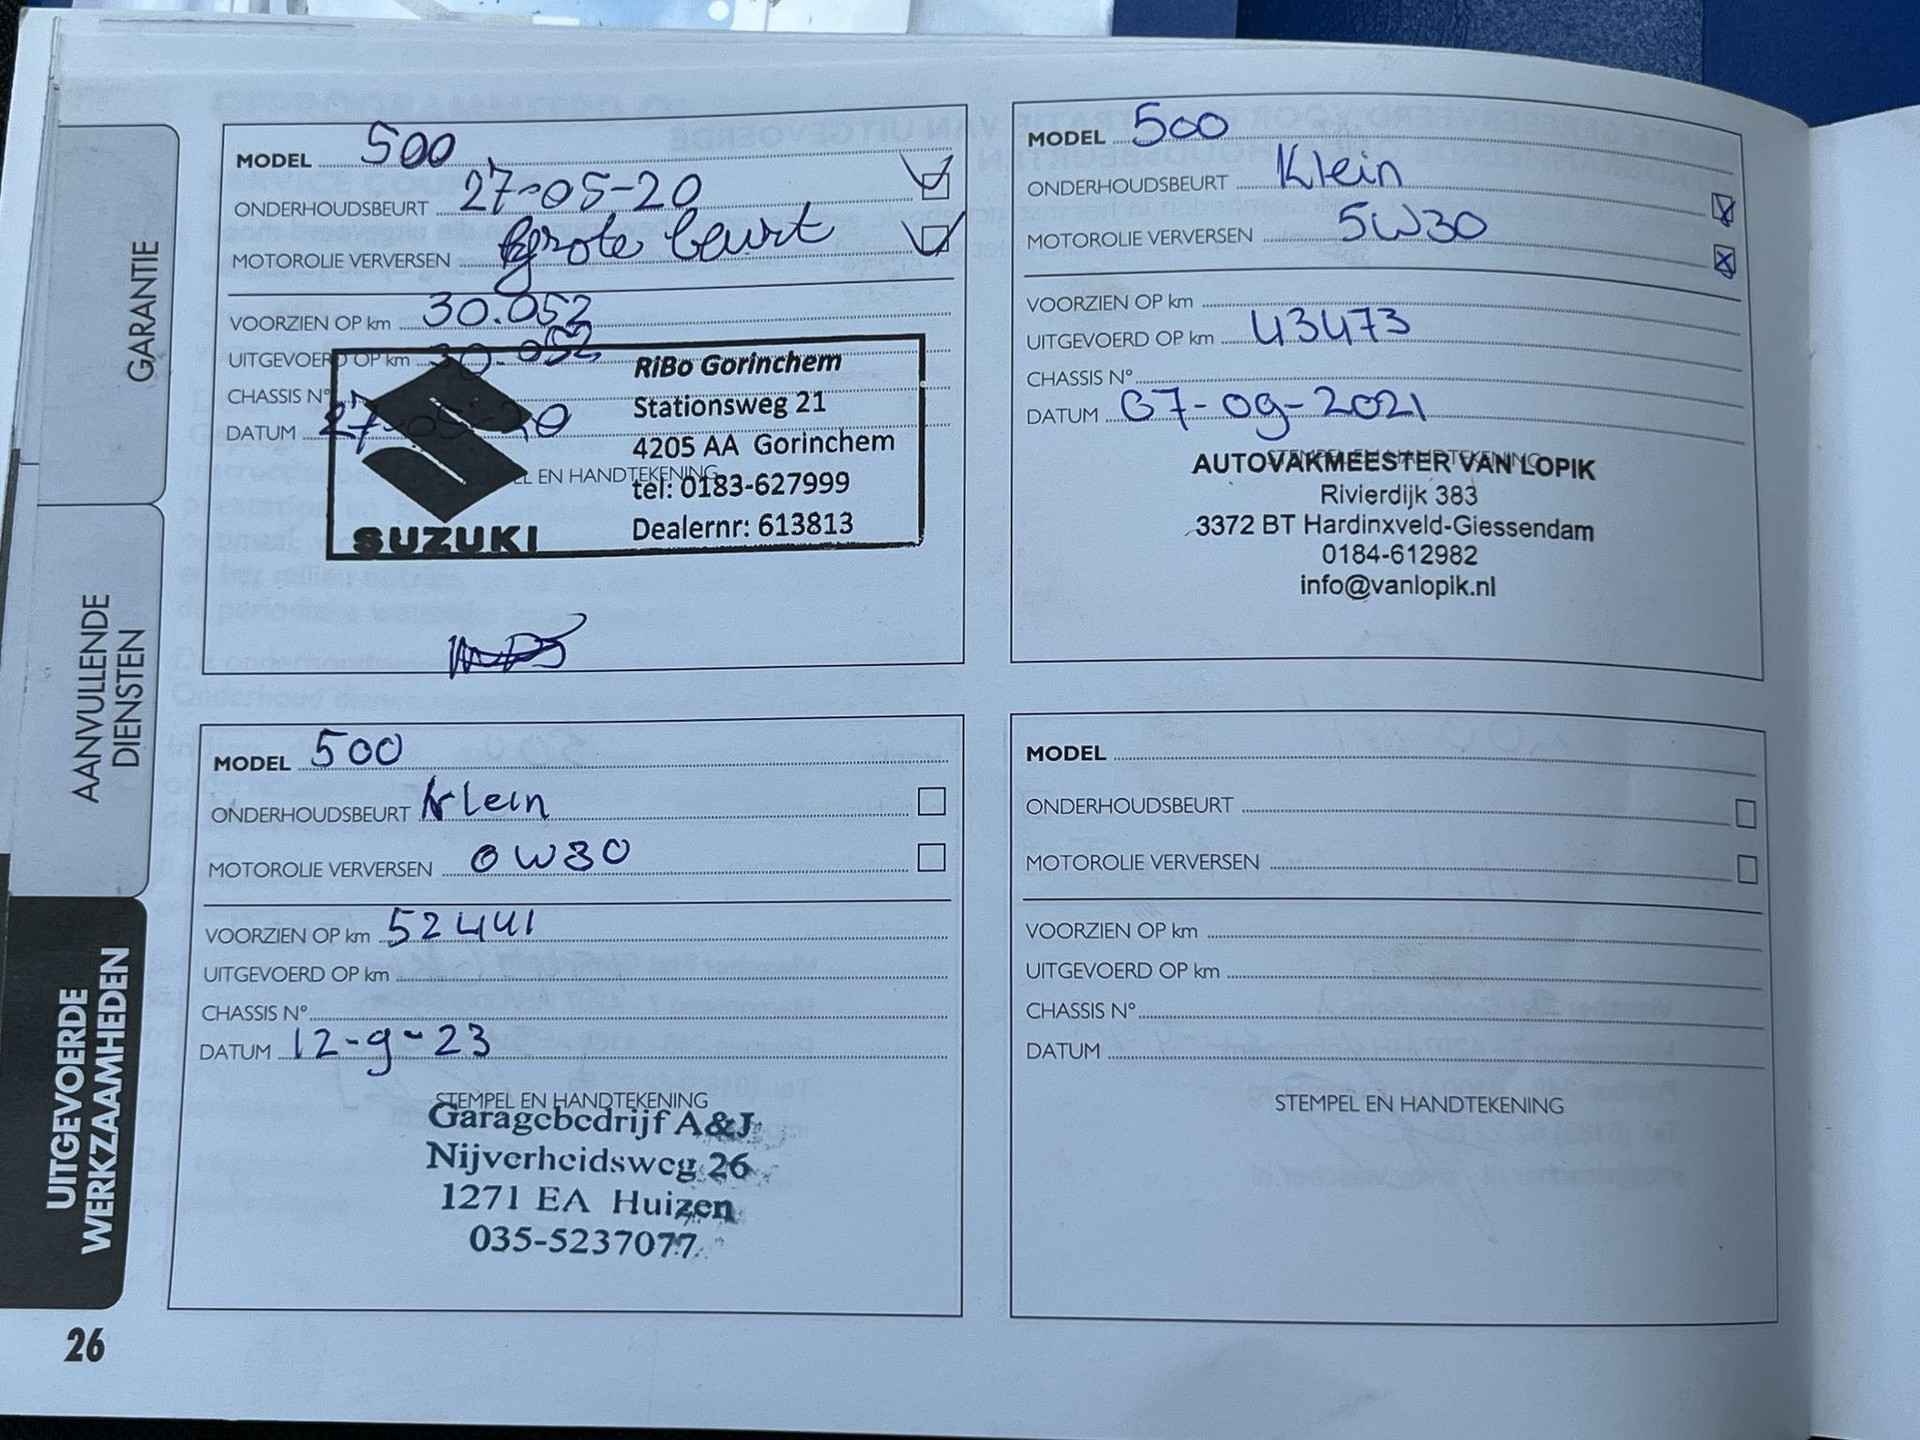 GARANTIE
AANVULLENDE
DIENSTEN
UITGEVOERDE
WERKZAAMHEDEN
26
MODEL 500
ONDERHOUDSBEURT 27-05-20
MOTOROLIE VERVERSEN grote beurt
VOORZIEN OP km 30.052
UITGEVOERD OP km 30.052
CHASSIS N°
DATUM 27-05-20
EN HANDTEKENING
SUZUKI
RiBo Gorinchem
Stationsweg 21
4205 AA Gorinchem
tel: 0183-627999
Dealernr: 613813
MODEL 500
ONDERHOUDSBEURT Klein
MOTOROLIE VERVERSEN 5W30
VOORZIEN OP km
UITGEVOERD OP km 43473
CHASSIS N°
DATUM 07-09-2021
STEMPEL EN HANDTEKENING
AUTOVAKMEESTER VAN LOPIK
Rivierdijk 383
3372 BT Hardinxveld-Giessendam
0184-612982
info@vanlopik.nl
MODEL 500
ONDERHOUDSBEURT Klein
MOTOROLIE VERVERSEN 0W30
VOORZIEN OP km 52441
UITGEVOERD OP km
CHASSIS N°
DATUM 12-9-23
STEMPEL EN HANDTEKENING
Garagebedrijf A&J
Nijverheidsweg 26
1271 EA Huizen
035-5237077
MODEL
ONDERHOUDSBEURT
MOTOROLIE VERVERSEN
VOORZIEN OP km
UITGEVOERD OP km
CHASSIS N°
DATUM
STEMPEL EN HANDTEKENING